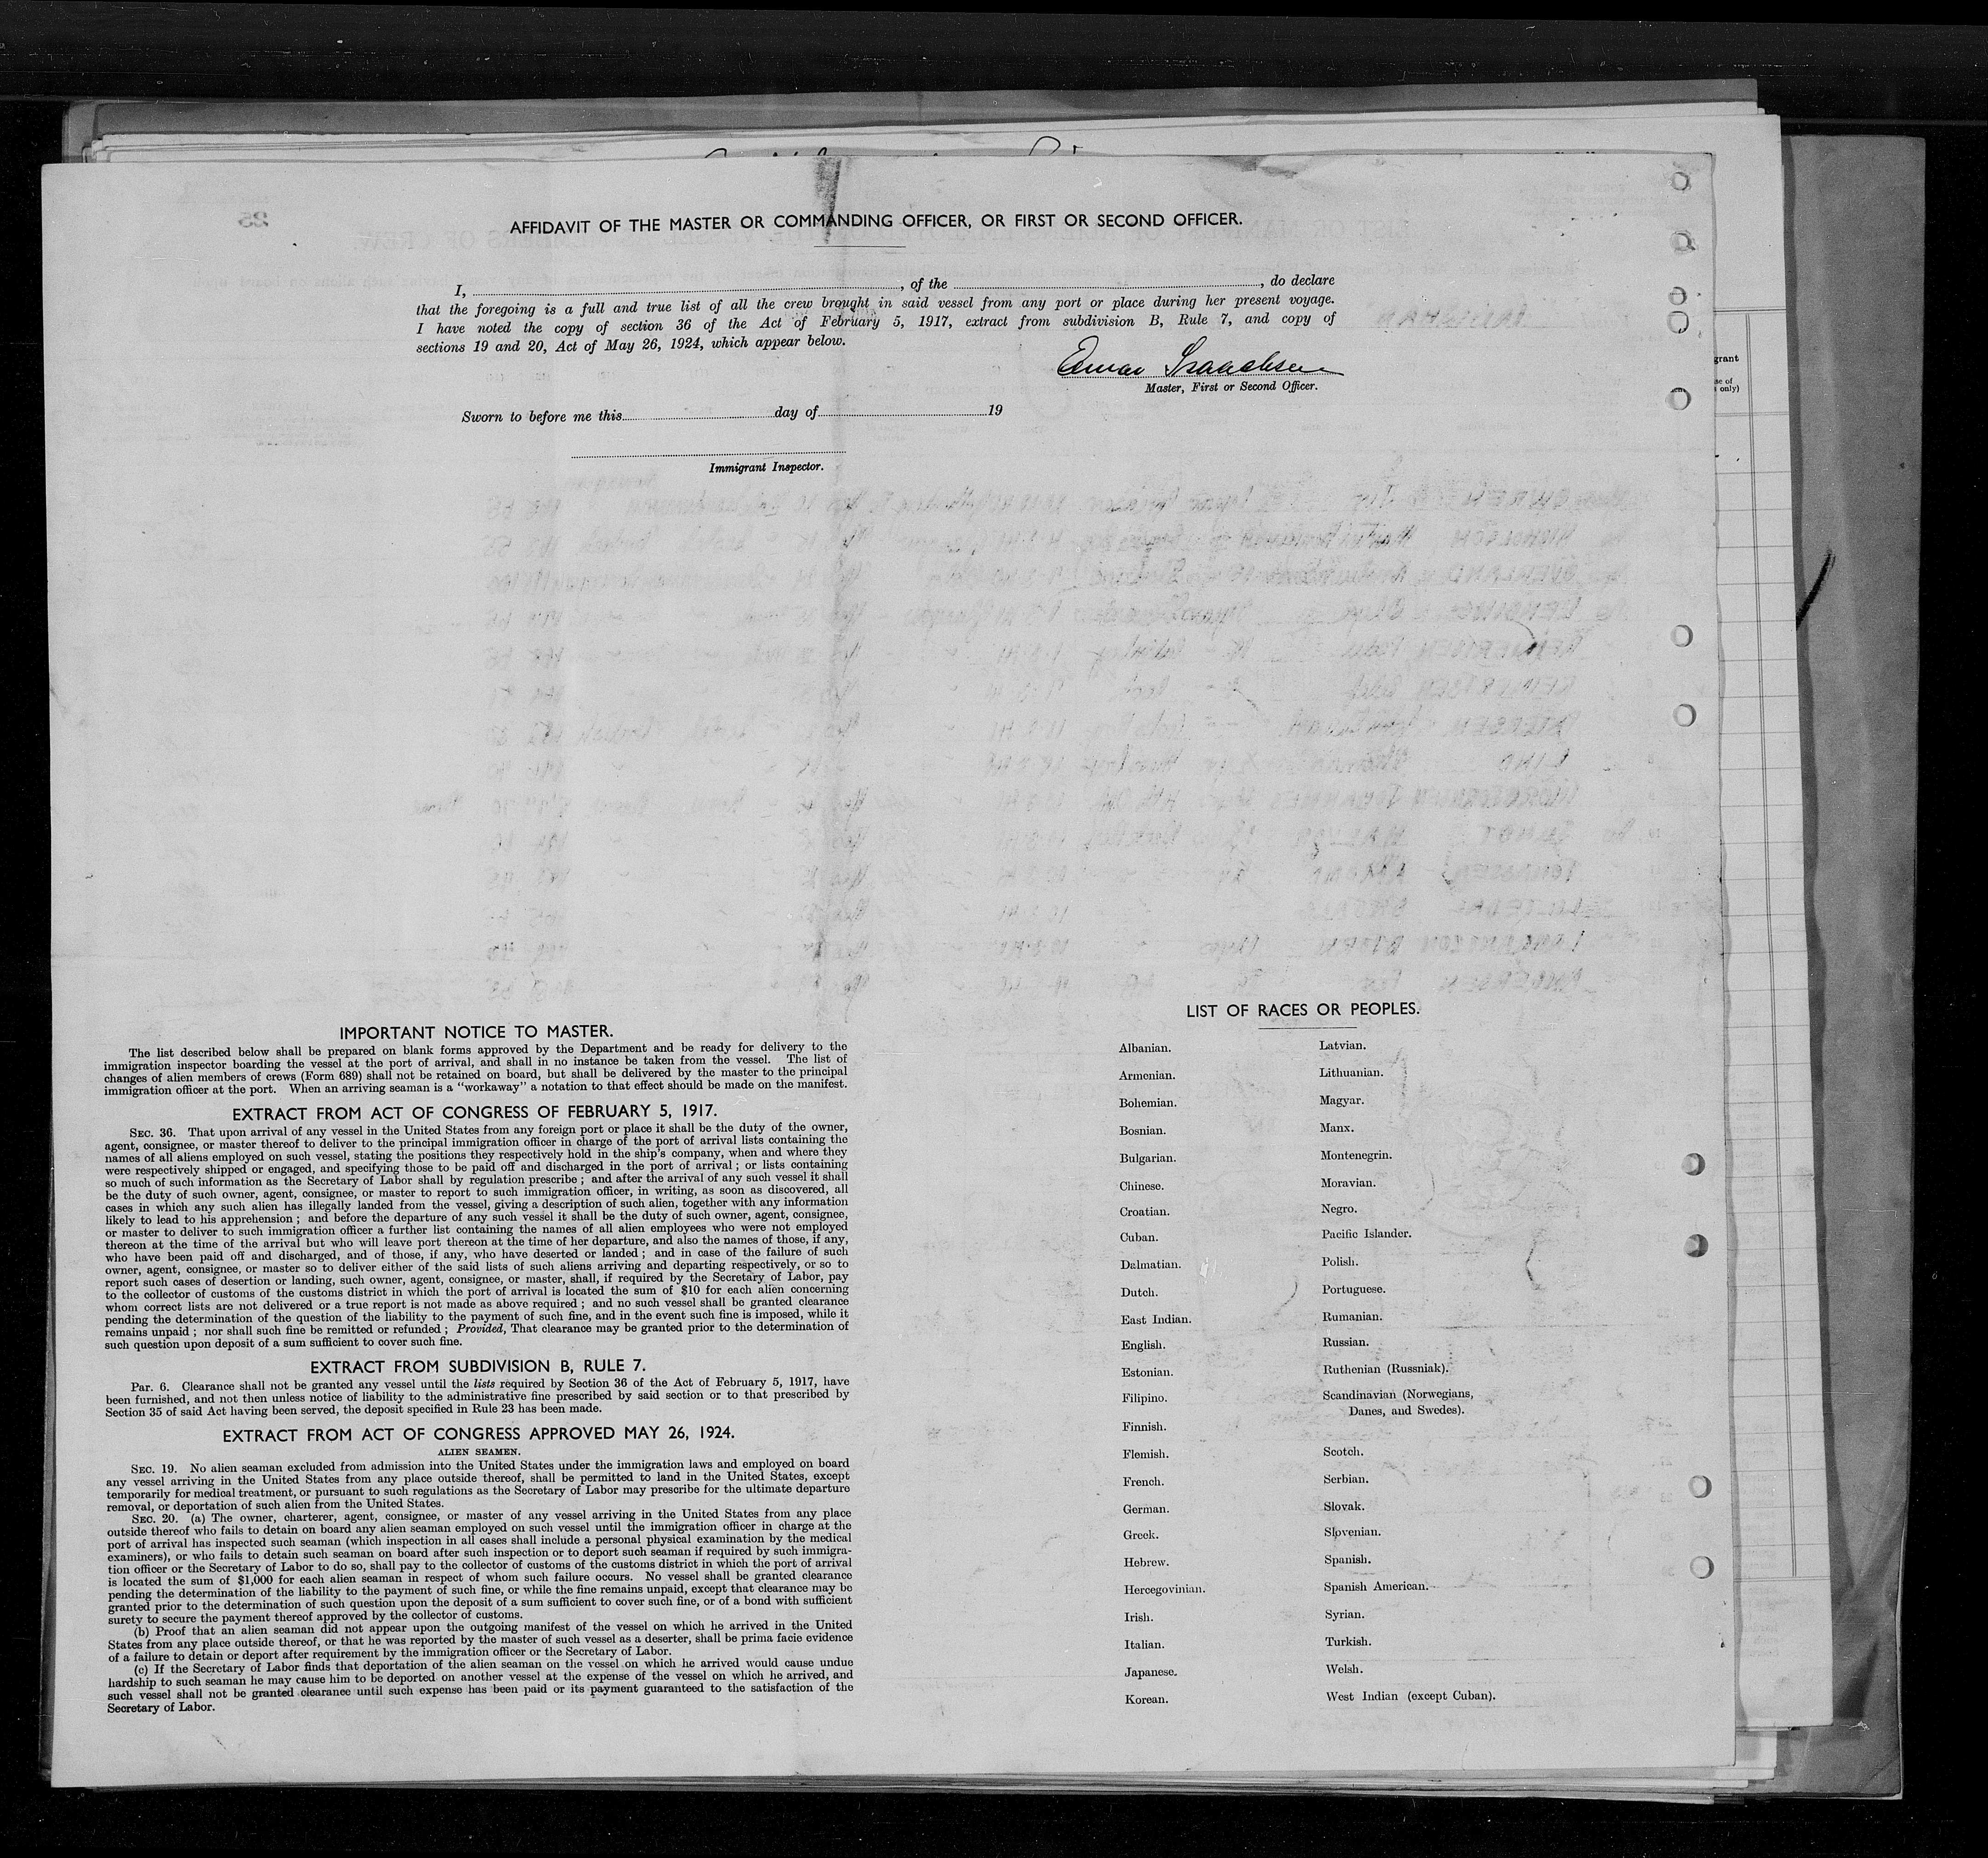 AFFIDAVIT OF THE MASTER OR COMMANDING OFFICER, OR FIRST OR SECOND OFFICER.
I, , of the , do declare
that the foregoing is a full and true list of all the crew brought in said vessel from any port or place during her present voyage.
I have noted the copy of section 36 of the Act of February 5, 1917, extract from subdivision B, Rule 7, and copy of
sections 19 and 20, Act of May 26, 1924, which appear below.
Einar Isaachsen
Master, First or Second Officer.
Sworn to before me this day of 19
Immigrant Inspector.
IMPORTANT NOTICE TO MASTER.
The list described below shall be prepared on blank forms approved by the Department and be ready for delivery to the
immigration inspector boarding the vessel at the port of arrival, and shall in no instance be taken from the vessel. The list of
changes of alien members of crews (Form 689) shall not be retained on board, but shall be delivered by the master to the principal
immigration officer at the port. When an arriving seaman is a "workaway" a notation to that effect should be made on the manifest.
EXTRACT FROM ACT OF CONGRESS OF FEBRUARY 5, 1917.
SEC. 36. That upon arrival of any vessel in the United States from any foreign port or place it shall be the duty of the owner,
agent, consignee, or master thereof to deliver to the principal immigration officer in charge of the port of arrival lists containing the
names of all aliens employed on such vessel, stating the positions they respectively hold in the ship's company, when and where they
were respectively shipped or engaged, and specifying those to be paid off and discharged in the port of arrival ; or lists containing
so much of such information as the Secretary of Labor shall by regulation prescribe ; and after the arrival of any such vessel it shall
be the duty of such owner, agent, consignee, or master to report to such immigration officer, in writing, as soon as discovered, all
cases in which any such alien has illegally landed from the vessel, giving a description of such alien, together with any information
likely to lead to his apprehension ; and before the departure of any such vessel it shall be the duty of such owner, agent, consignee,
or master to deliver to such immigration officer a further list containing the names of all alien employees who were not employed
thereon at the time of the arrival but who will leave port thereon at the time of her departure, and also the names of those, if any,
who have been paid off and discharged, and of those, if any, who have deserted or landed ; and in case of the failure of such
owner, agent, consignee, or master so to deliver either of the said lists of such aliens arriving and departing respectively, or so to
report such cases of desertion or landing, such owner, agent, consignee, or master, shall, if required by the Secretary of Labor, pay
to the collector of customs of the customs district in which the port of arrival is located the sum of $10 for each alien concerning
whom correct lists are not delivered or a true report is not made as above required ; and no such vessel shall be granted clearance
pending the determination of the question of the liability to the payment of such fine, and in the event such fine is imposed, while it
remains unpaid ; nor shall such fine be remitted or refunded ; Provided, That clearance may be granted prior to the determination of
such question upon deposit of a sum sufficient to cover such fine.
EXTRACT FROM SUBDIVISION B, RULE 7.
Par. 6. Clearance shall not be granted any vessel until the lists required by Section 36 of the Act of February 5, 1917, have
been furnished, and not then unless notice of liability to the administrative fine prescribed by said section or to that prescribed by
Section 35 of said Act having been served, the deposit specified in Rule 23 has been made.
EXTRACT FROM ACT OF CONGRESS APPROVED MAY 26, 1924.
ALIEN SEAMEN.
SEC. 19. No alien seaman excluded from admission into the United States under the immigration laws and employed on board
any vessel arriving in the United States from any place outside thereof, shall be permitted to land in the United States, except
temporarily for medical treatment, or pursuant to such regulations as the Secretary of Labor may prescribe for the ultimate departure
removal, or deportation of such alien from the United States.
SEC. 20. (a) The owner, charterer, agent, consignee, or master of any vessel arriving in the United States from any place
outside thereof who fails to detain on board any alien seaman employed on such vessel until the immigration officer in charge at the
port of arrival has inspected such seaman (which inspection in all cases shall include a personal physical examination by the medical
examiners), or who fails to detain such seaman on board after such inspection or to deport such seaman if required by such immigra-
tion officer or the Secretary of Labor to do so, shall pay to the collector of customs of the customs district in which the port of arrival
is located the sum of $1,000 for each alien seaman in respect of whom such failure occurs. No vessel shall be granted clearance
pending the determination of the liability to the payment of such fine, or while the fine remains unpaid, except that clearance may be
granted prior to the determination of such question upon the deposit of a sum sufficient to cover such fine, or of a bond with sufficient
surety to secure the payment thereof approved by the collector of customs.
(b) Proof that an alien seaman did not appear upon the outgoing manifest of the vessel on which he arrived in the United
States from any place outside thereof, or that he was reported by the master of such vessel as a deserter, shall be prima facie evidence
of a failure to detain or deport after requirement by the immigration officer or the Secretary of Labor.
(c) If the Secretary of Labor finds that deportation of the alien seaman on the vessel on which he arrived would cause undue
hardship to such seaman he may cause him to be deported on another vessel at the expense of the vessel on which he arrived, and
such vessel shall not be granted clearance until such expense has been paid or its payment guaranteed to the satisfaction of the
Secretary of Labor.
LIST OF RACES OR PEOPLES.
Albanian.
Armenian.
Bohemian.
Bosnian.
Bulgarian.
Chinese.
Croatian.
Cuban.
Dalmatian.
Dutch.
East Indian.
English.
Estonian.
Filipino.
Finnish.
Flemish.
French.
German.
Greek.
Hebrew.
Hercegovinian.
Irish.
Italian.
Japanese.
Korean.
Latvian.
Lithuanian.
Magyar.
Manx.
Montenegrin.
Moravian.
Negro.
Pacific Islander.
Polish.
Portuguese.
Rumanian.
Russian.
Ruthenian (Russniak).
Scandinavian (Norwegians,
Danes, and Swedes).
Scotch.
Serbian.
Slovak.
Slovenian.
Spanish.
Spanish American.
Syrian.
Turkish.
Welsh.
West Indian (except Cuban).